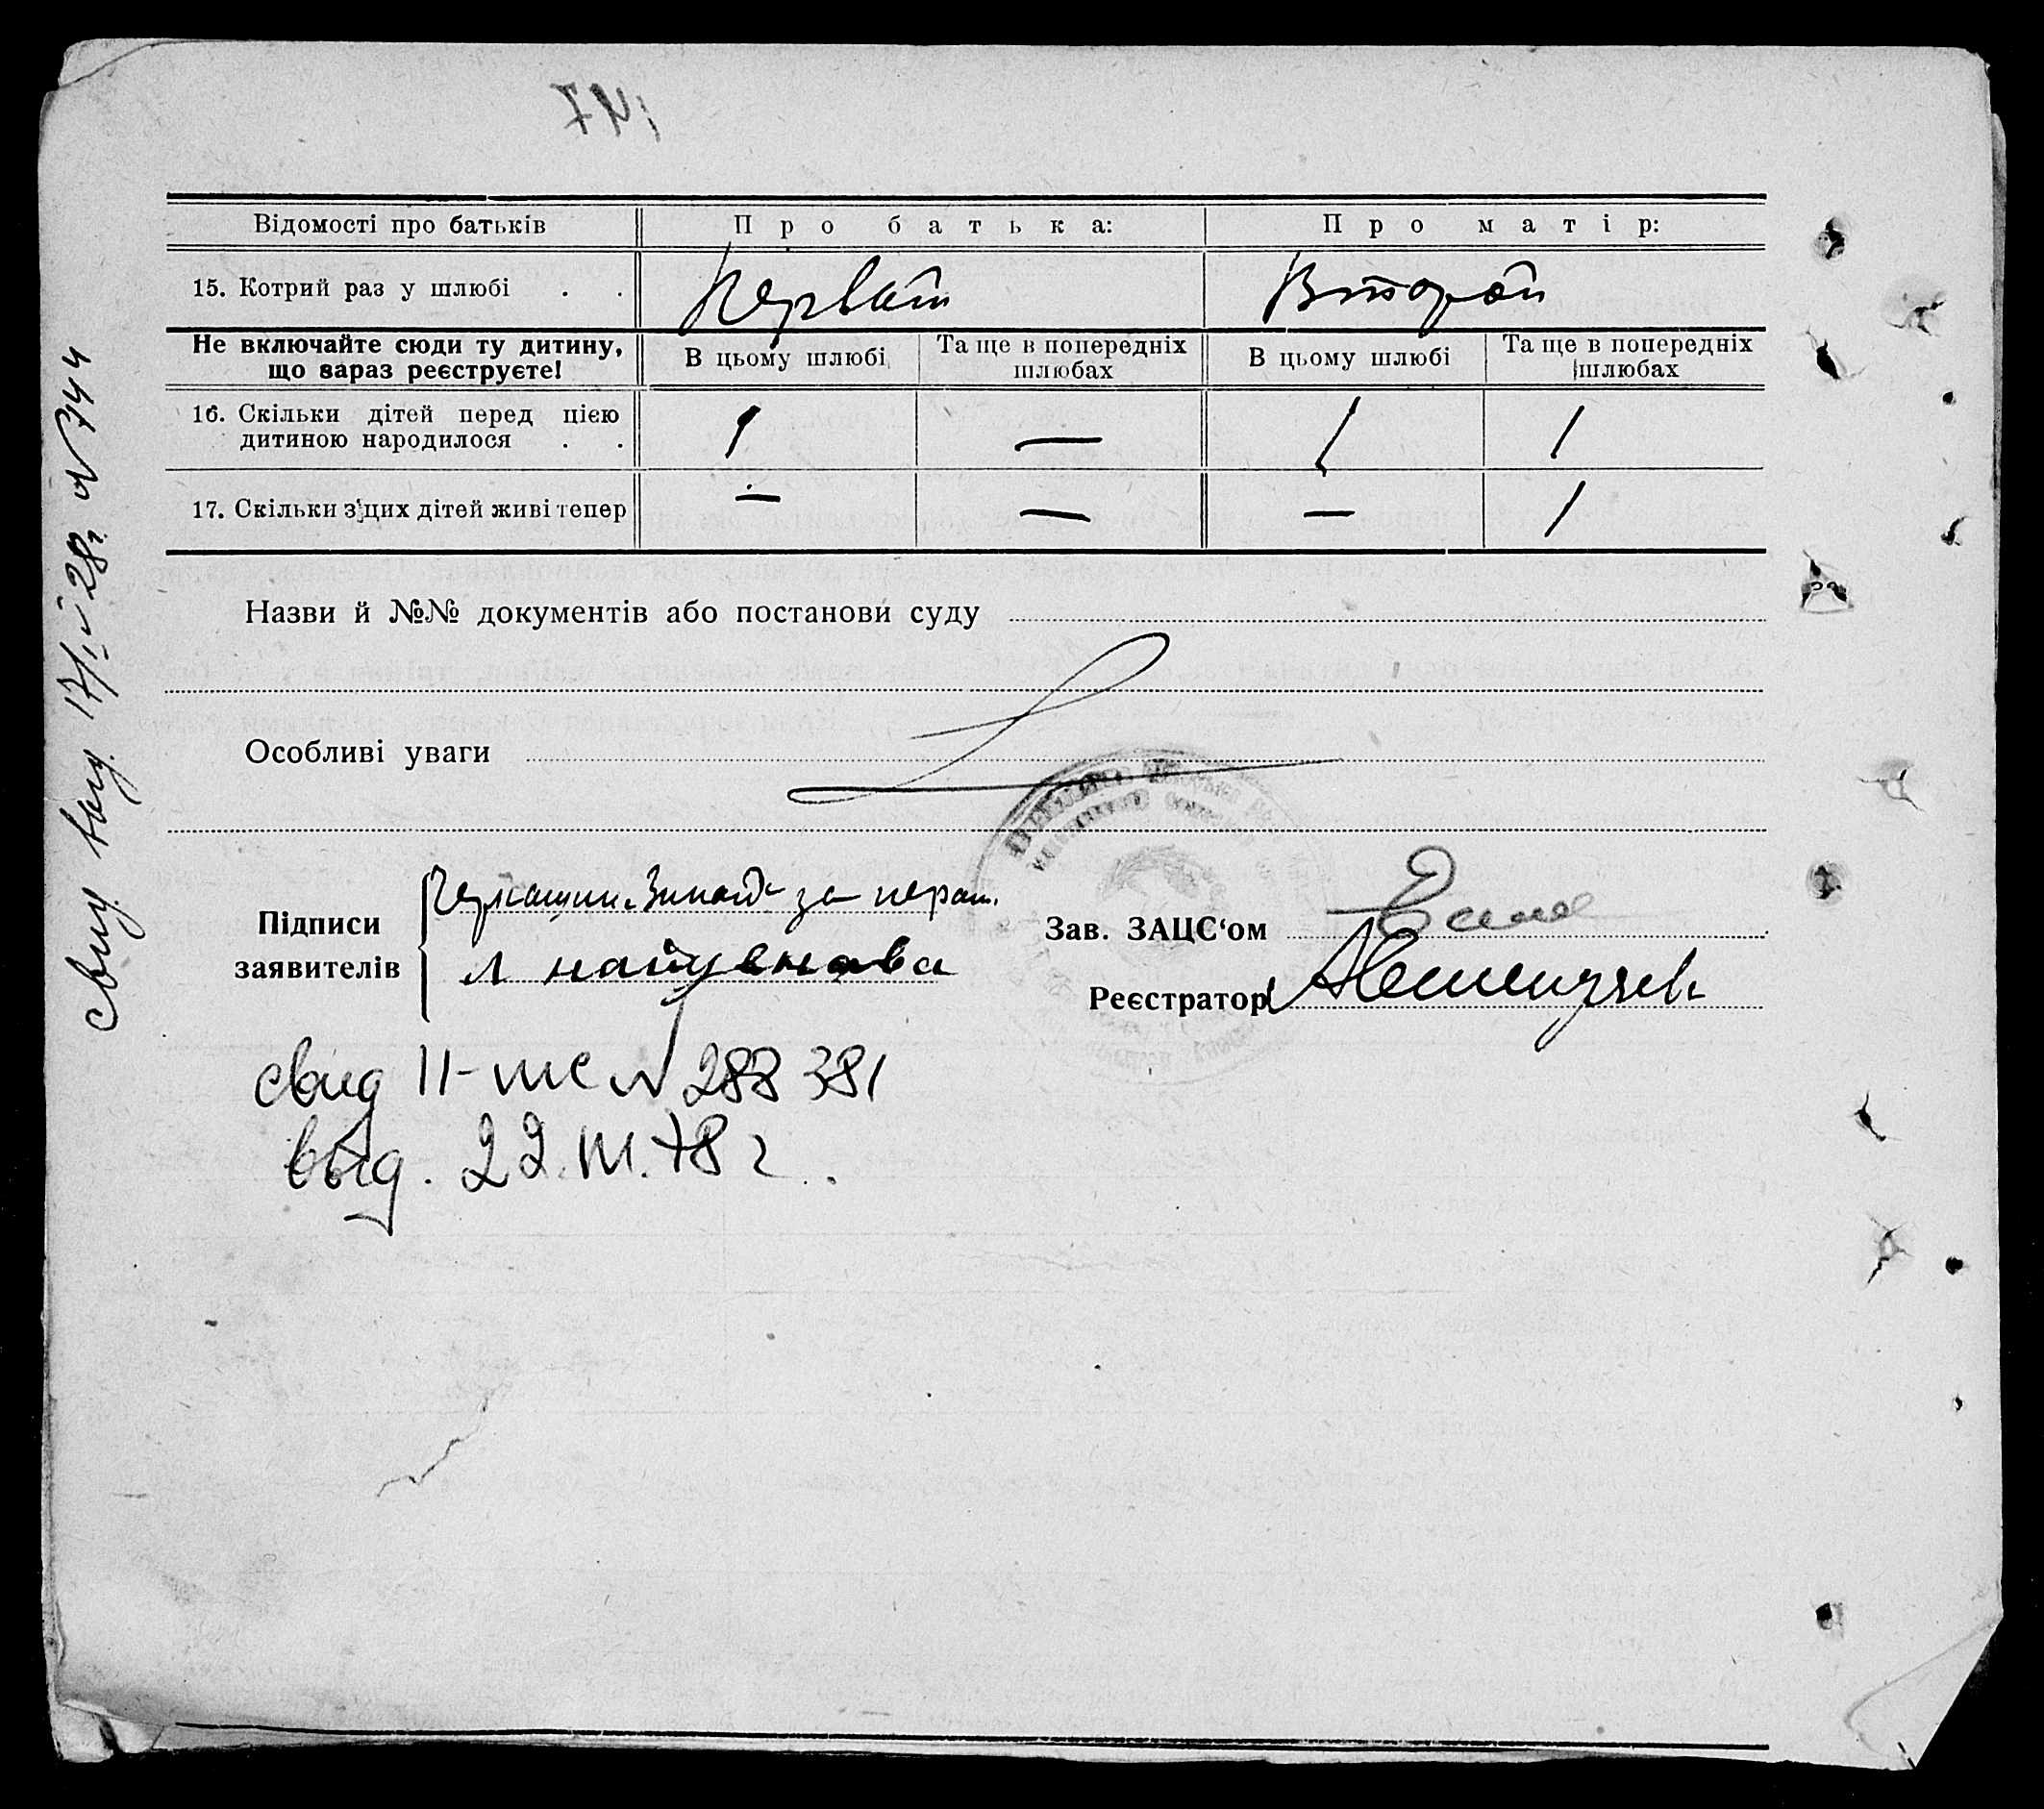 Відомості про батьків Про батька: Про матір:
15. Котрий раз у шлюбі . . Первый Второй
Не включайте сюди ту дитину, що зараз реєструєте! В цьому шлюбі Та ще в попередніх шлюбах В цьому шлюбі Та ще в попередніх шлюбах
16. Скільки дітей перед цією
дитиною народилося . . 1 — 1 1
17. Скільки з цих дітей живі тепер — — — 1
Назви й №№ документів або постанови суду
Особливі уваги
Підписи
заявителів
Зав. ЗАЦС‘ом
Реєстратор
свид II-ше N 288 381
выд. 22.III.78 г.
свид. выд. 17/I-28г. N 744